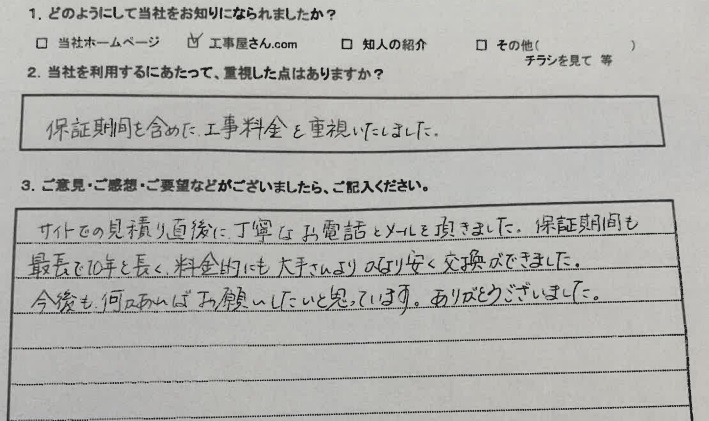 1. どのようにして当社をお知りになられましたか？
□ 当社ホームページ ☑ 工事屋さん.com □ 知人の紹介 □ その他( )
チラシを見て 等
2. 当社を利用するにあたって、重視した点はありますか？
保証期間を含めた、工事料金を重視いたしました。
3. ご意見・ご感想・ご要望などがございましたら、ご記入ください。
サイトでの見積り直後に、丁寧なお電話とメールを頂きました。保証期間も
最長で10年と長く、料金的にも大手さんよりかなり安く交換ができました。
今後も、何かあればお願いしたいと思っています。ありがとうございました。